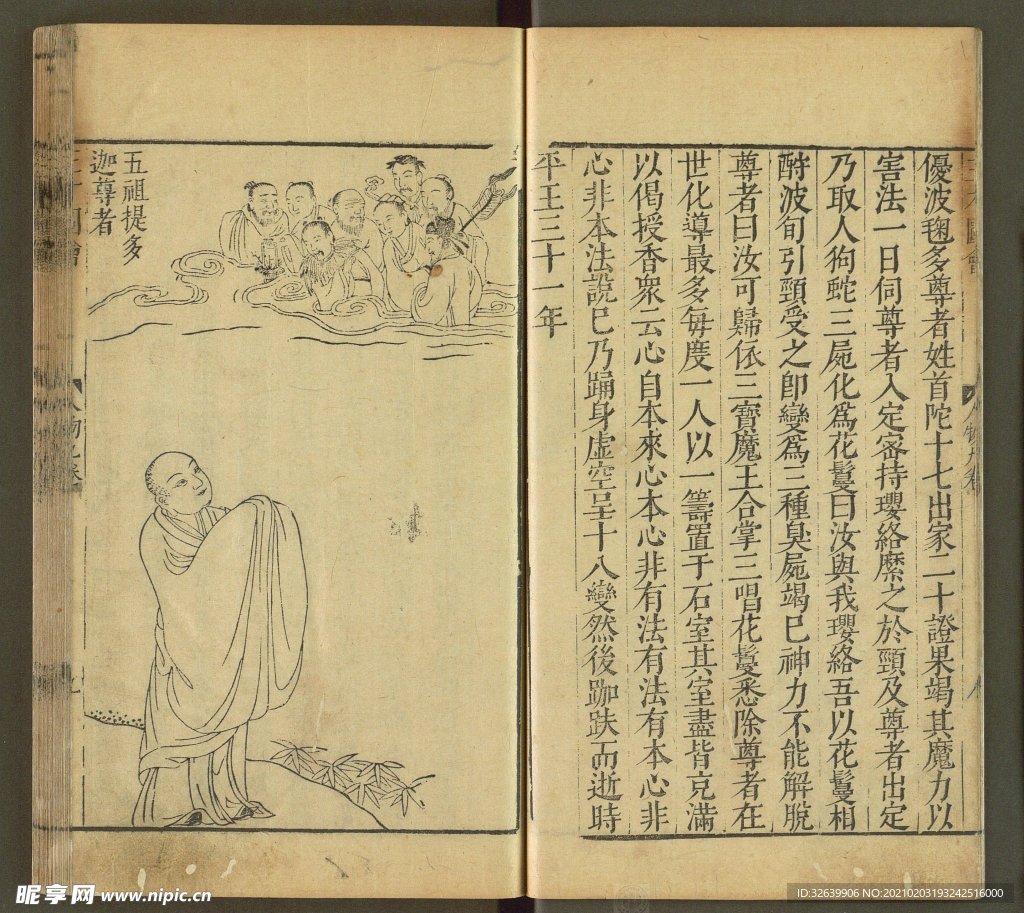 優波毱多尊者姓首陀十七出家二十證果竭其魔力以
害法一日伺尊者入定密持瓔絡縻之於頸及尊者出定
乃取人狗蛇三屍化為花鬘曰汝與我瓔絡吾以花鬘相
酧波旬引頸受之即變為三種臭屍竭巳神力不能解脫
尊者曰汝可歸依三寶魔王合掌三唱花鬘悉除尊者在
世化導最多每度一人以一籌置于石室其室盡皆充滿
以偈授香衆云心自本來心本心非有法有法有本心非
心非本法說巳乃踊身虛空呈十八變然後跏趺而逝時
平王三十一年
五祖提多
迦尊者
人物九卷
昵享网 www.nipic.cn
ID:32639906 NO:20210203193242516000